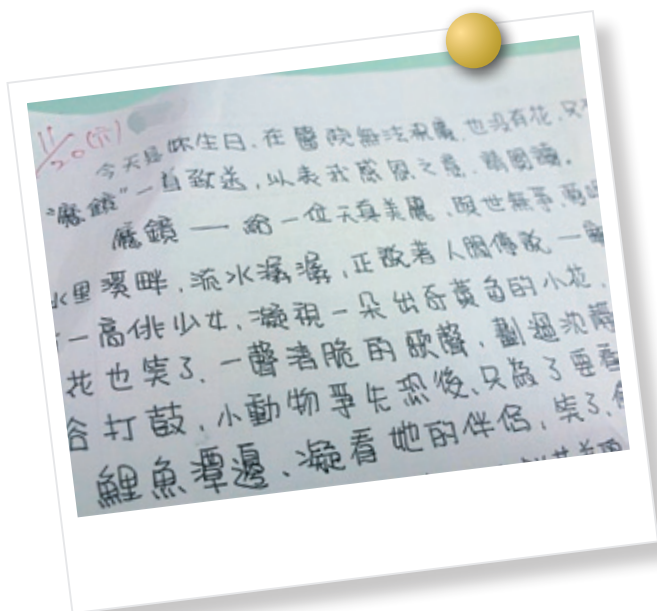 11/20(六)
今天是妳生日,在醫院無法祝慶,也沒有花,只
"魔鏡"一首致送,以表我感恩之意,請閱讀。
魔鏡 — 給一位天真美麗,與世無爭
水里溪畔,流水潺潺,正說著人間傳說,一
一高佻少女,凝視一朵出奇黃色的小花,
花也笑了,一聲清脆的歌聲,劃過沈
谷打鼓,小動物爭先恐後,只為了要看
鯉魚潭邊,凝看她的伴侶,笑了,